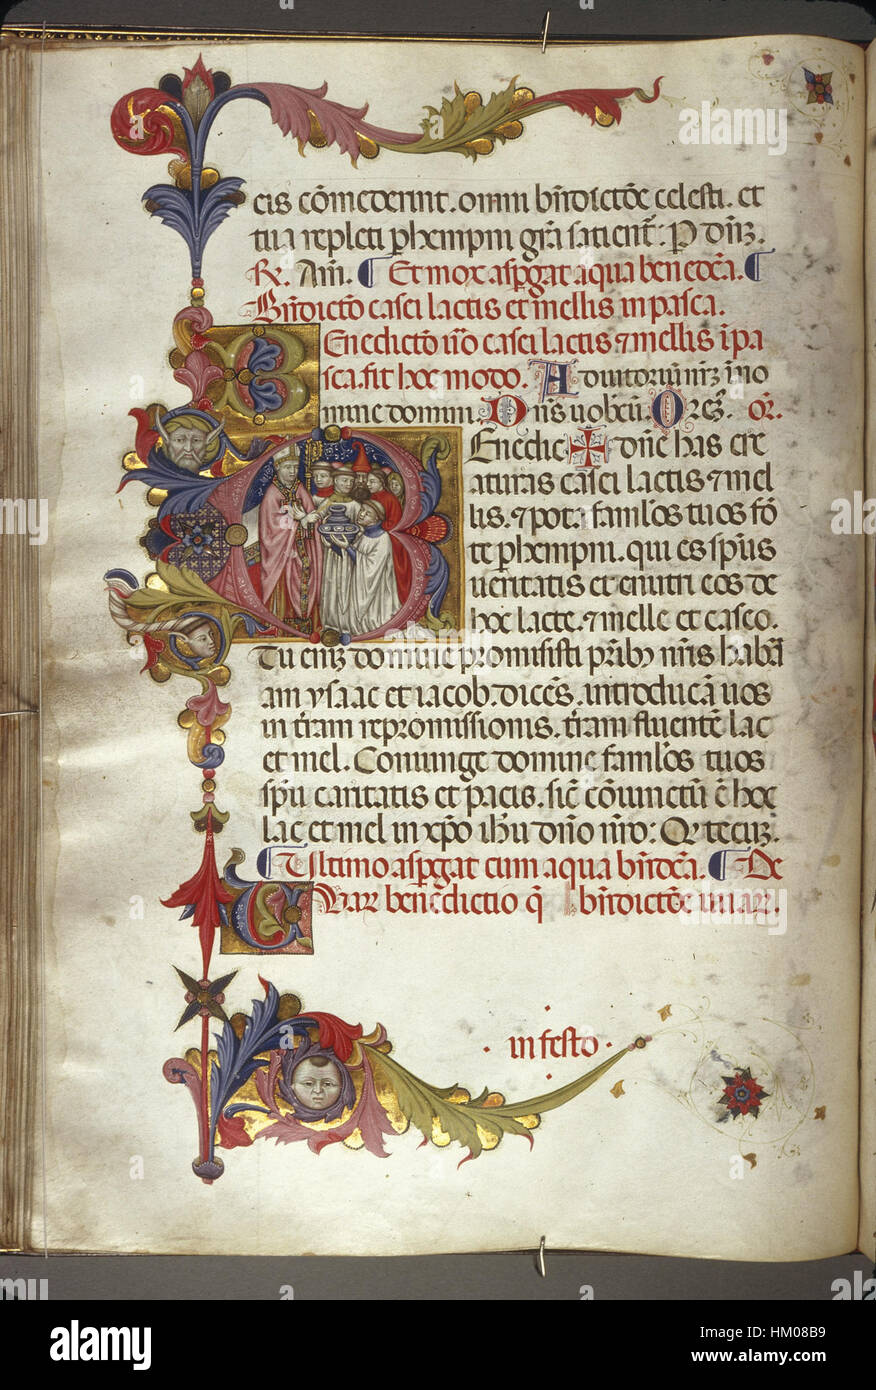 cis cōmederint. omni bn̄dictōe celesti. et
tua repleti p hempm grā satient᷑: P dn̄m̄z.
R̷. Am̄. ¶ Et mox asp̱gat aqua bened̄c̄a. ¶
Bn̄dictō casei lactis et mellis in pasca.
Benedictō ū̄o casei lactis ⁊ mellis ī pa
sca. fit hoc modo. Adiutoriū nr̄m̄z ī no
mine domini. Dn̄s uobcū̄. Orem̄z. or̄.
Benedic ✠ dn̄e has cre
aturas casei lactis ⁊ mel
lis. ⁊ pota famlos tuos fō
te p hempni. qui es sp̄us
ueritatis et enutri eos de
hoc lacte. ⁊ melle et caseo.
Tu eniz domine promisisti pr̄ibʒ nr̄is habrā
am ysaac et iacob. dicēs. introducā uos
in tr̄am repromissionis. tr̄am fluentē lac
et mel. Coniunge domine famlos tuos
sp̄u caritatis et pacis. sic̄ cōiunctū ē hoc
lac et mel in xp̄o ih̄u dn̄o nr̄o: Q̄ tecuz.
¶ Ultimo asp̱gat cum aqua bn̄dc̄a. ¶ De
Var benedictio q̄ bn̄dictōe
· in festo ·
alamy
alamy stock photo
HM08B9
www.alamy.com